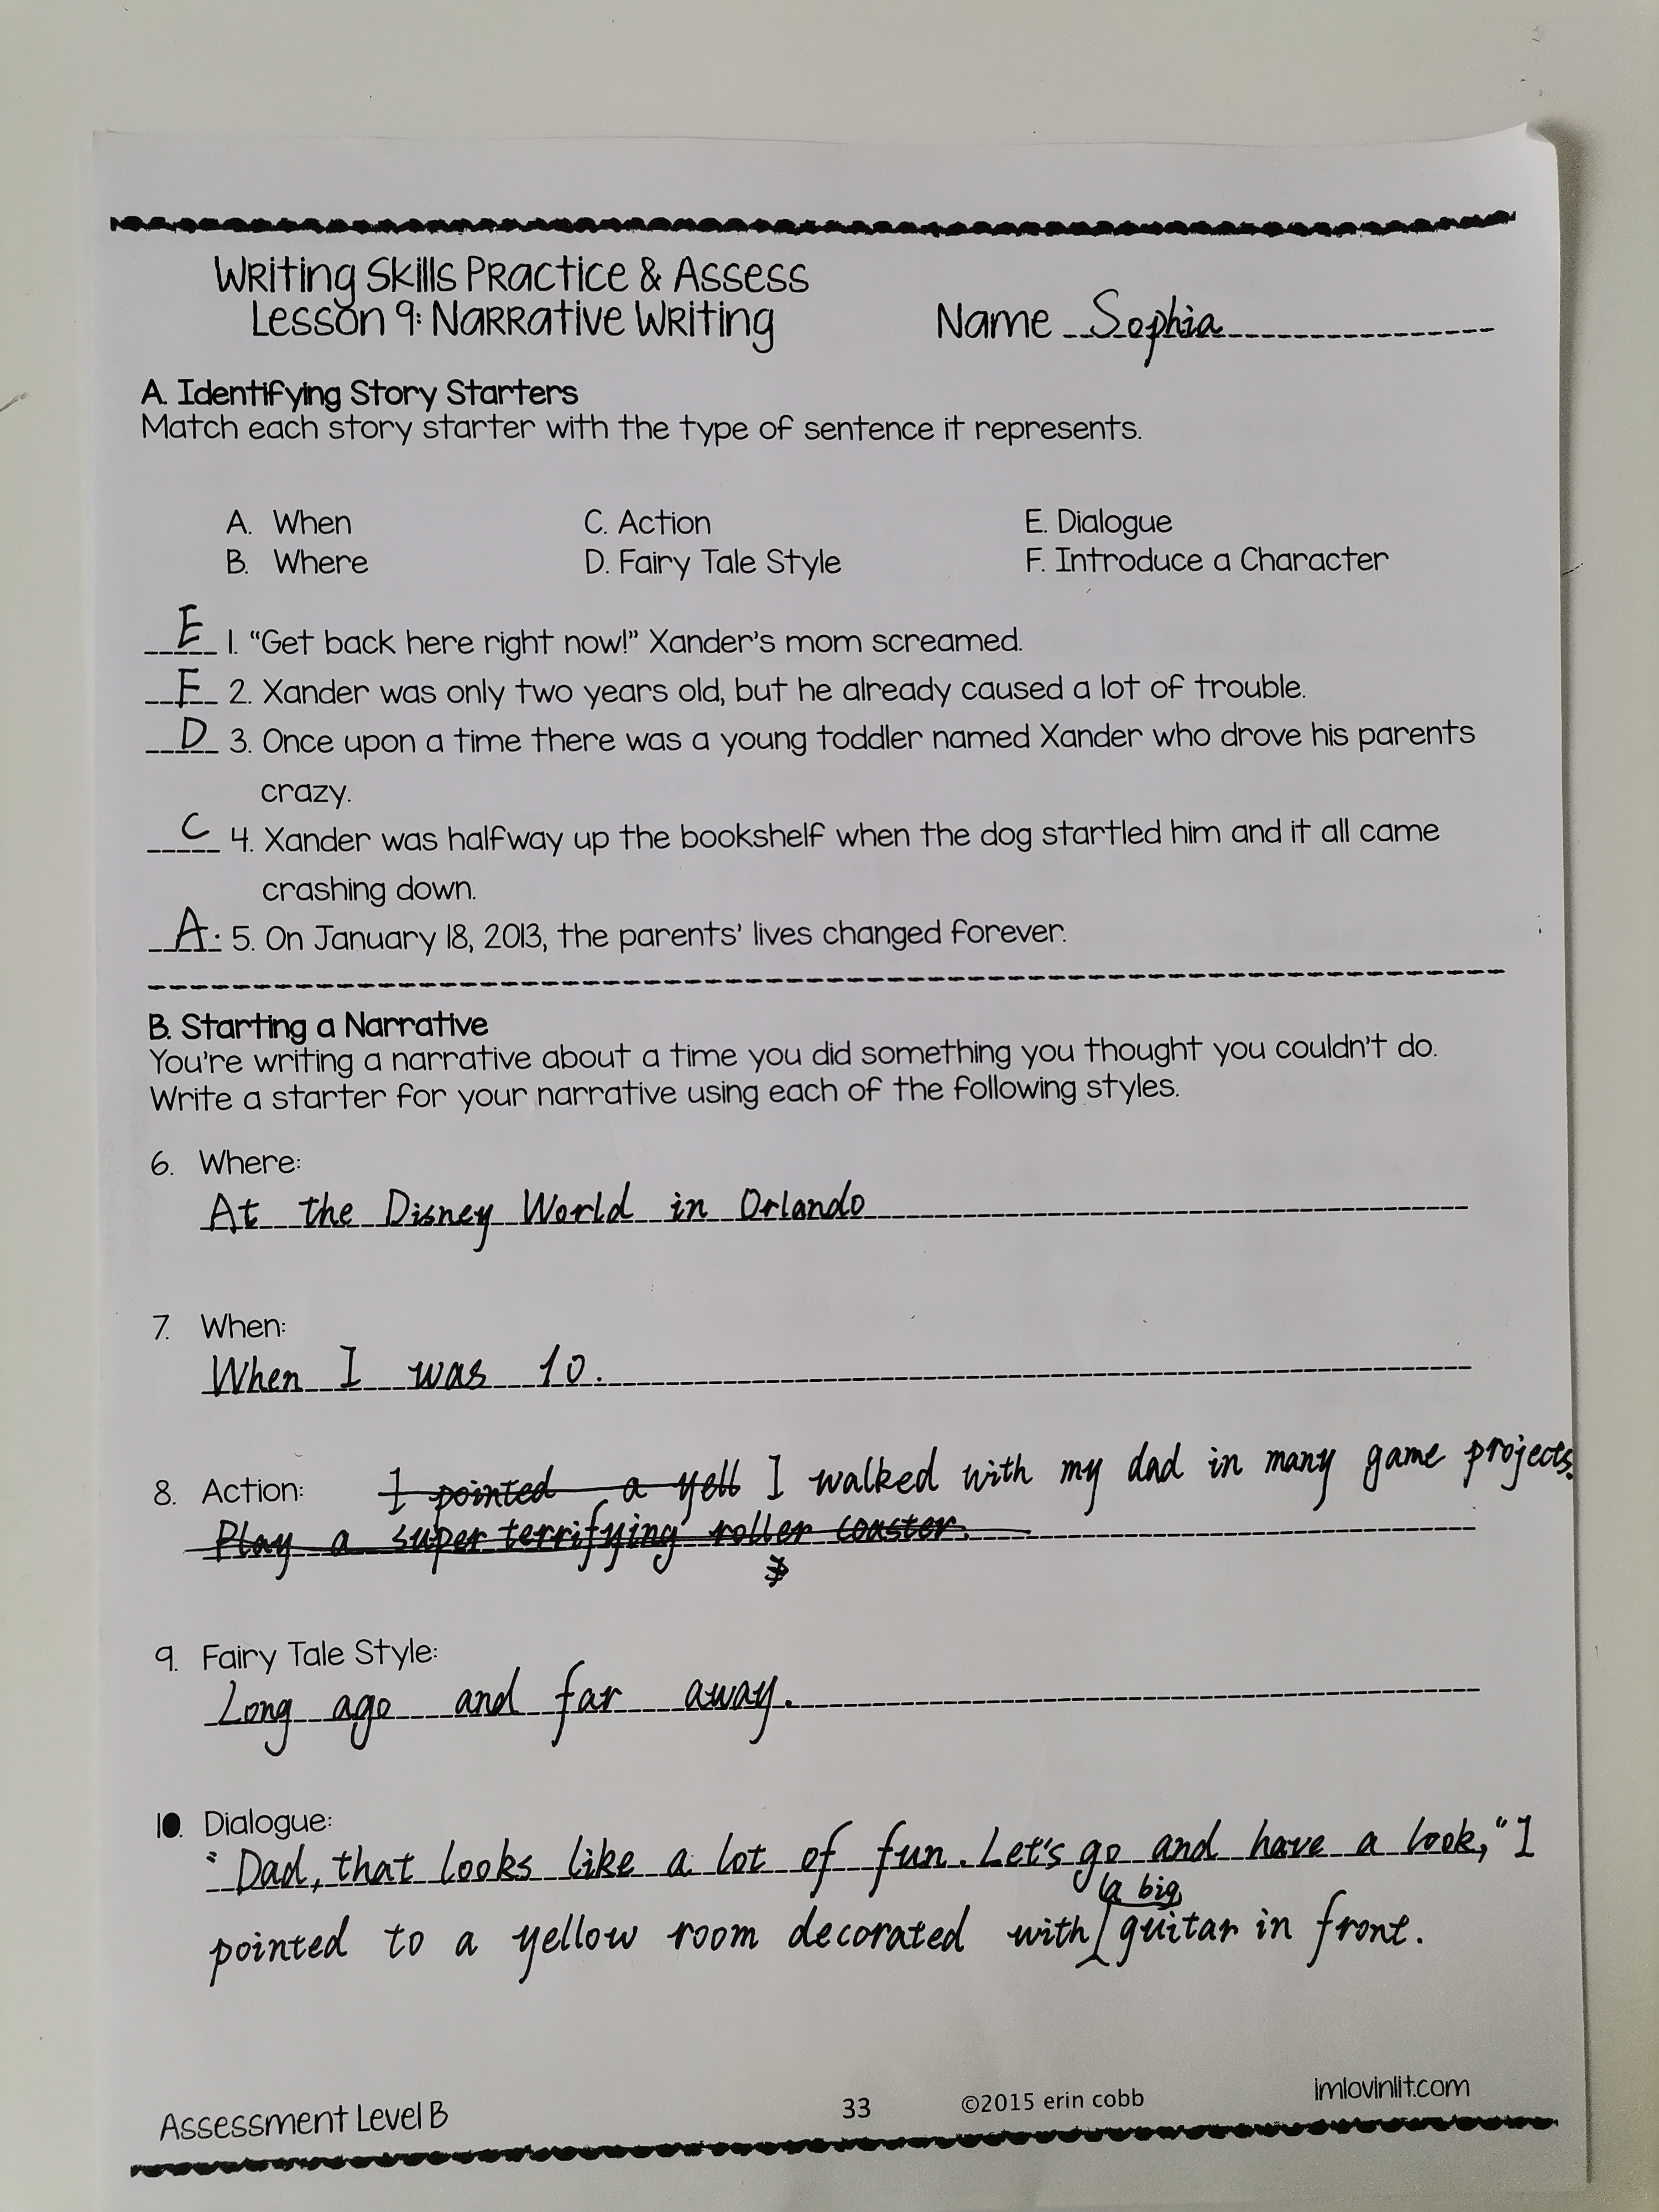 Writing Skills Practice & Assess
Lesson 9: Narrative Writing
Name Sophia
A. Identifying Story Starters
Match each story starter with the type of sentence it represents.
A. When
C. Action
E. Dialogue
B. Where
D. Fairy Tale Style
F. Introduce a Character
E 1. “Get back here right now!” Xander’s mom screamed.
F 2. Xander was only two years old, but he already caused a lot of trouble.
D 3. Once upon a time there was a young toddler named Xander who drove his parents
crazy.
C 4. Xander was halfway up the bookshelf when the dog startled him and it all came
crashing down.
A. 5. On January 18, 2013, the parents’ lives changed forever.
B. Starting a Narrative
You’re writing a narrative about a time you did something you thought you couldn’t do.
Write a starter for your narrative using each of the following styles.
6. Where:
At the Disney World in Orlando
7. When:
When I was 10.
8. Action: I pointed a yell I walked with my dad in many game projects.
Play a super terrifying roller coaster.
9. Fairy Tale Style:
Long ago and far away.
10. Dialogue:
"Dad, that looks like a lot of fun. Let's go and have a look," I
a big
pointed to a yellow room decorated with guitar in front.
Assessment Level B
33
©2015 erin cobb
imlovinlit.com